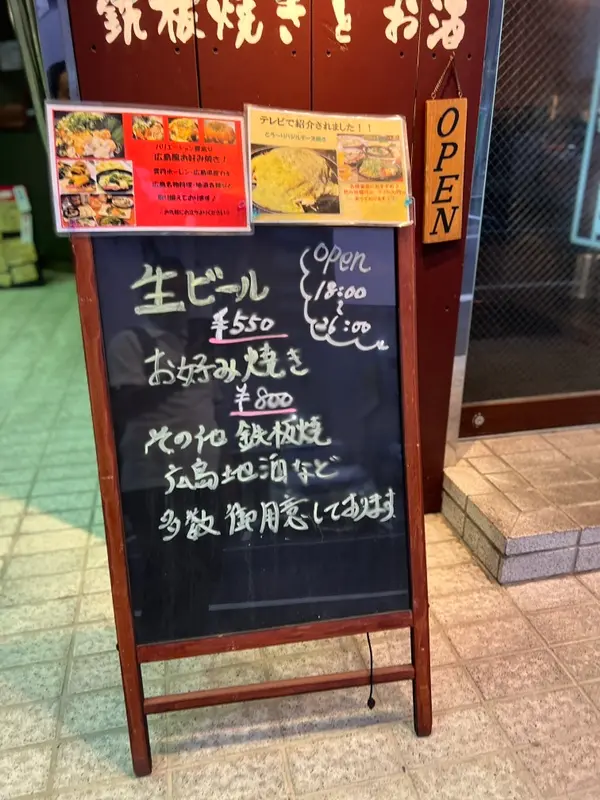 鉄板焼きとお酒
OPEN
バリエーション豊富な
広島風お好み焼き！
テレビで紹介されました！！
生ビール
¥550
open
18:00
〜
26:00
お好み焼き
¥800
その他 鉄板焼
広島地酒など
多数御用意しております